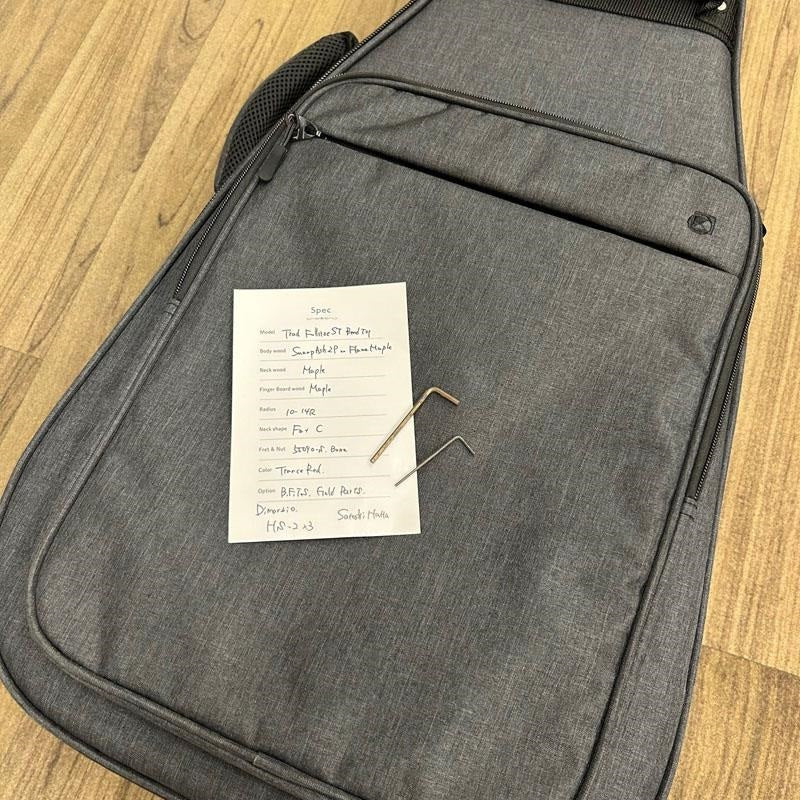 Spec
Model Trad Fullsize ST Bend Top
Body wood Swamp Ash 2P on Flame Maple
Neck wood Maple
Finger Board wood Maple
Radius 10-14R
Neck shape Fat C
Fret & Nut Bone
Color Trance Red.
Option B.F.T.S. Gold Parts.
Dimarzio.
HS-2 x3
Satoshi